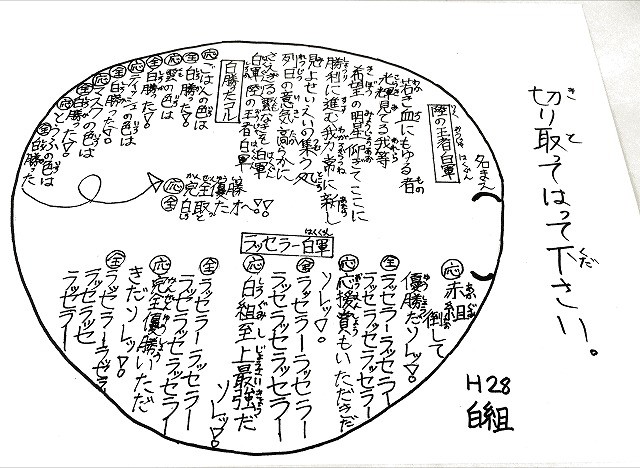 切り取ってはって下さい。
H28
白組
名まえ
陸の王者白軍
若き血にもゆる者
光輝見てる我等
希望の明星仰ぎてここに
勝利に進む我が力常に新し
見よせいえいの集う処
列日の意気高らかに
さえぎる雲なきを白軍
白軍 陸の王者白軍
白勝ったコール
応 ごはんの色は
全 白勝った!!
応 雲の色は
全 白勝った!!
応 ティシュの色は
全 白勝った!!
応 マスクの色は
全 白勝った
応 とうふの色は
全 白勝った
応 完全優勝
ラッセラー白軍
応 赤組倒して
優勝だソレッ!!
全 ラッセラーラッセラー
ラッセラーラッセラー
応 応援賞もいただきだ
ソレッ!!
全 ラッセラーラッセラー
ラッセラーラッセラー
応 白組至上最強だ
ソレッ!!
全 ラッセラーラッセラー
ラッセラーラッセラー
応 完全優勝いただ
きだソレッ!!
全 ラッセラーラッセラー
ラッセラーラッセ
ラッセラー